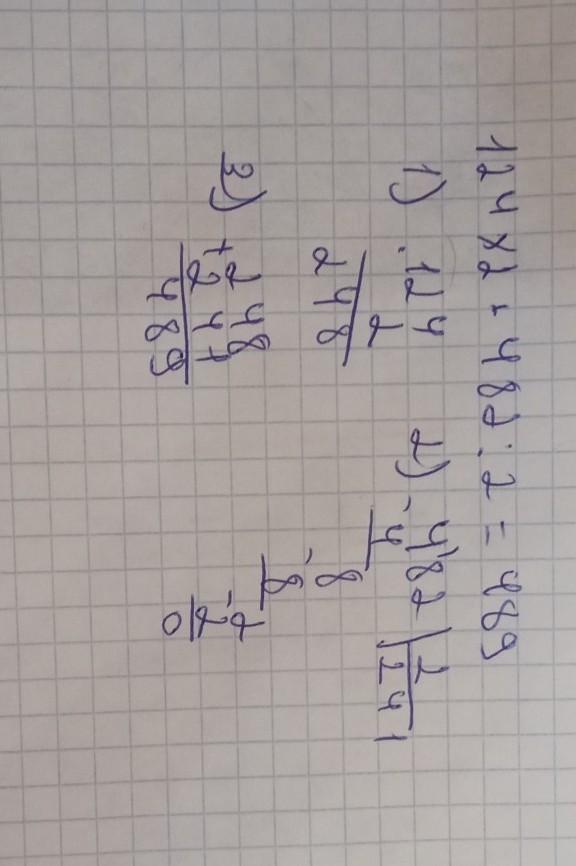 124 x 2 + 482 : 2 = 489
1) .124
2
248
2) -482 | 2
4 | 241
-8
8
-2
2
0
3) +248
241
489